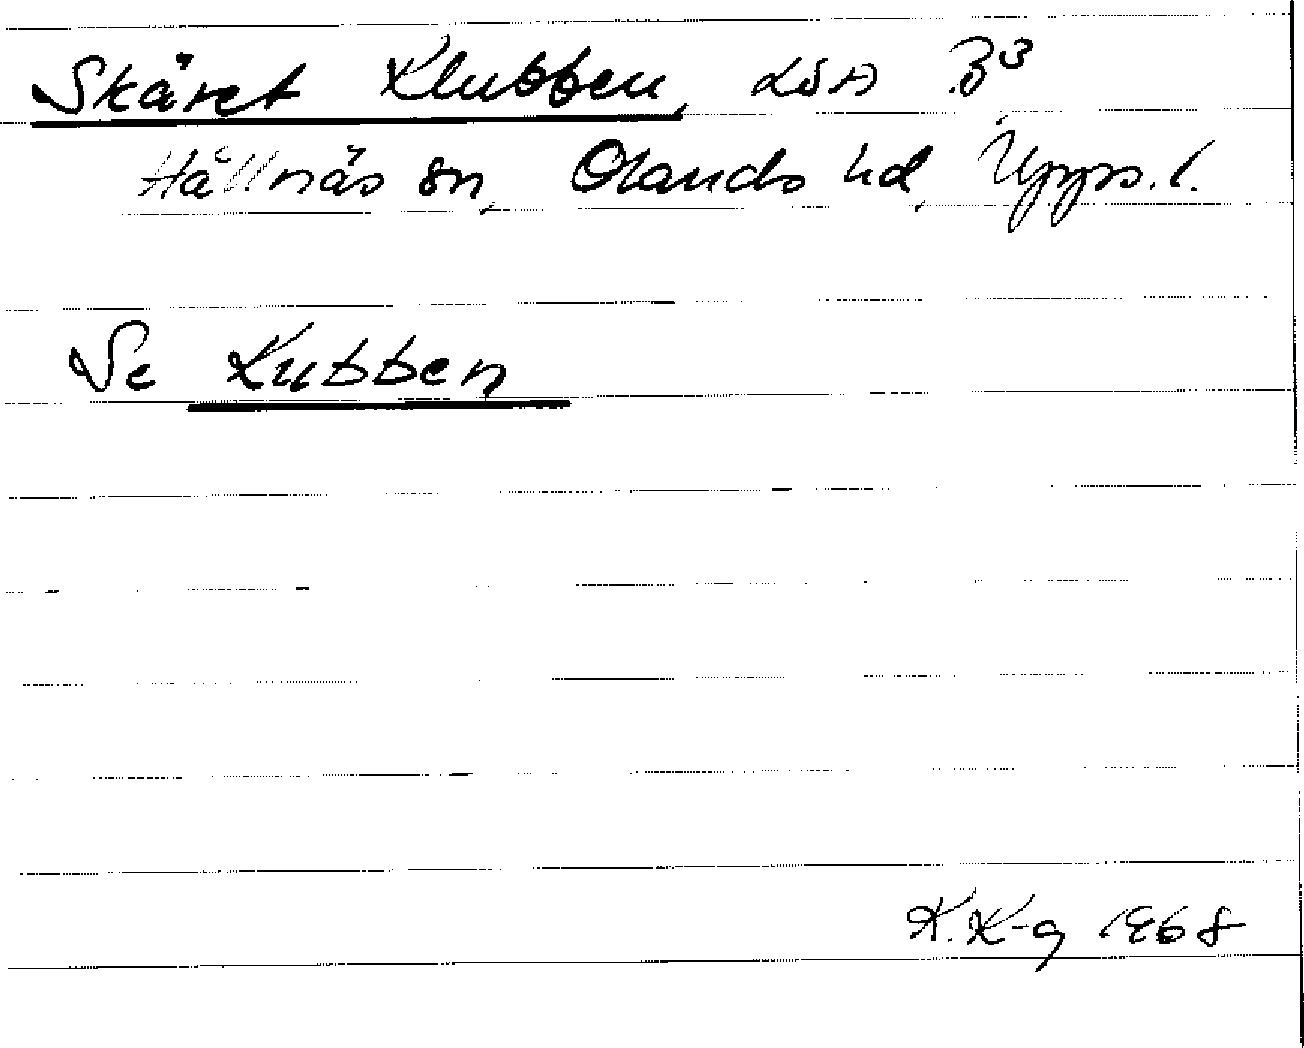 Skäret Klubben, LSA B³
Hållnäs sn, Olands hd, Upps. l.
Se Kubben
K. K-g 1968